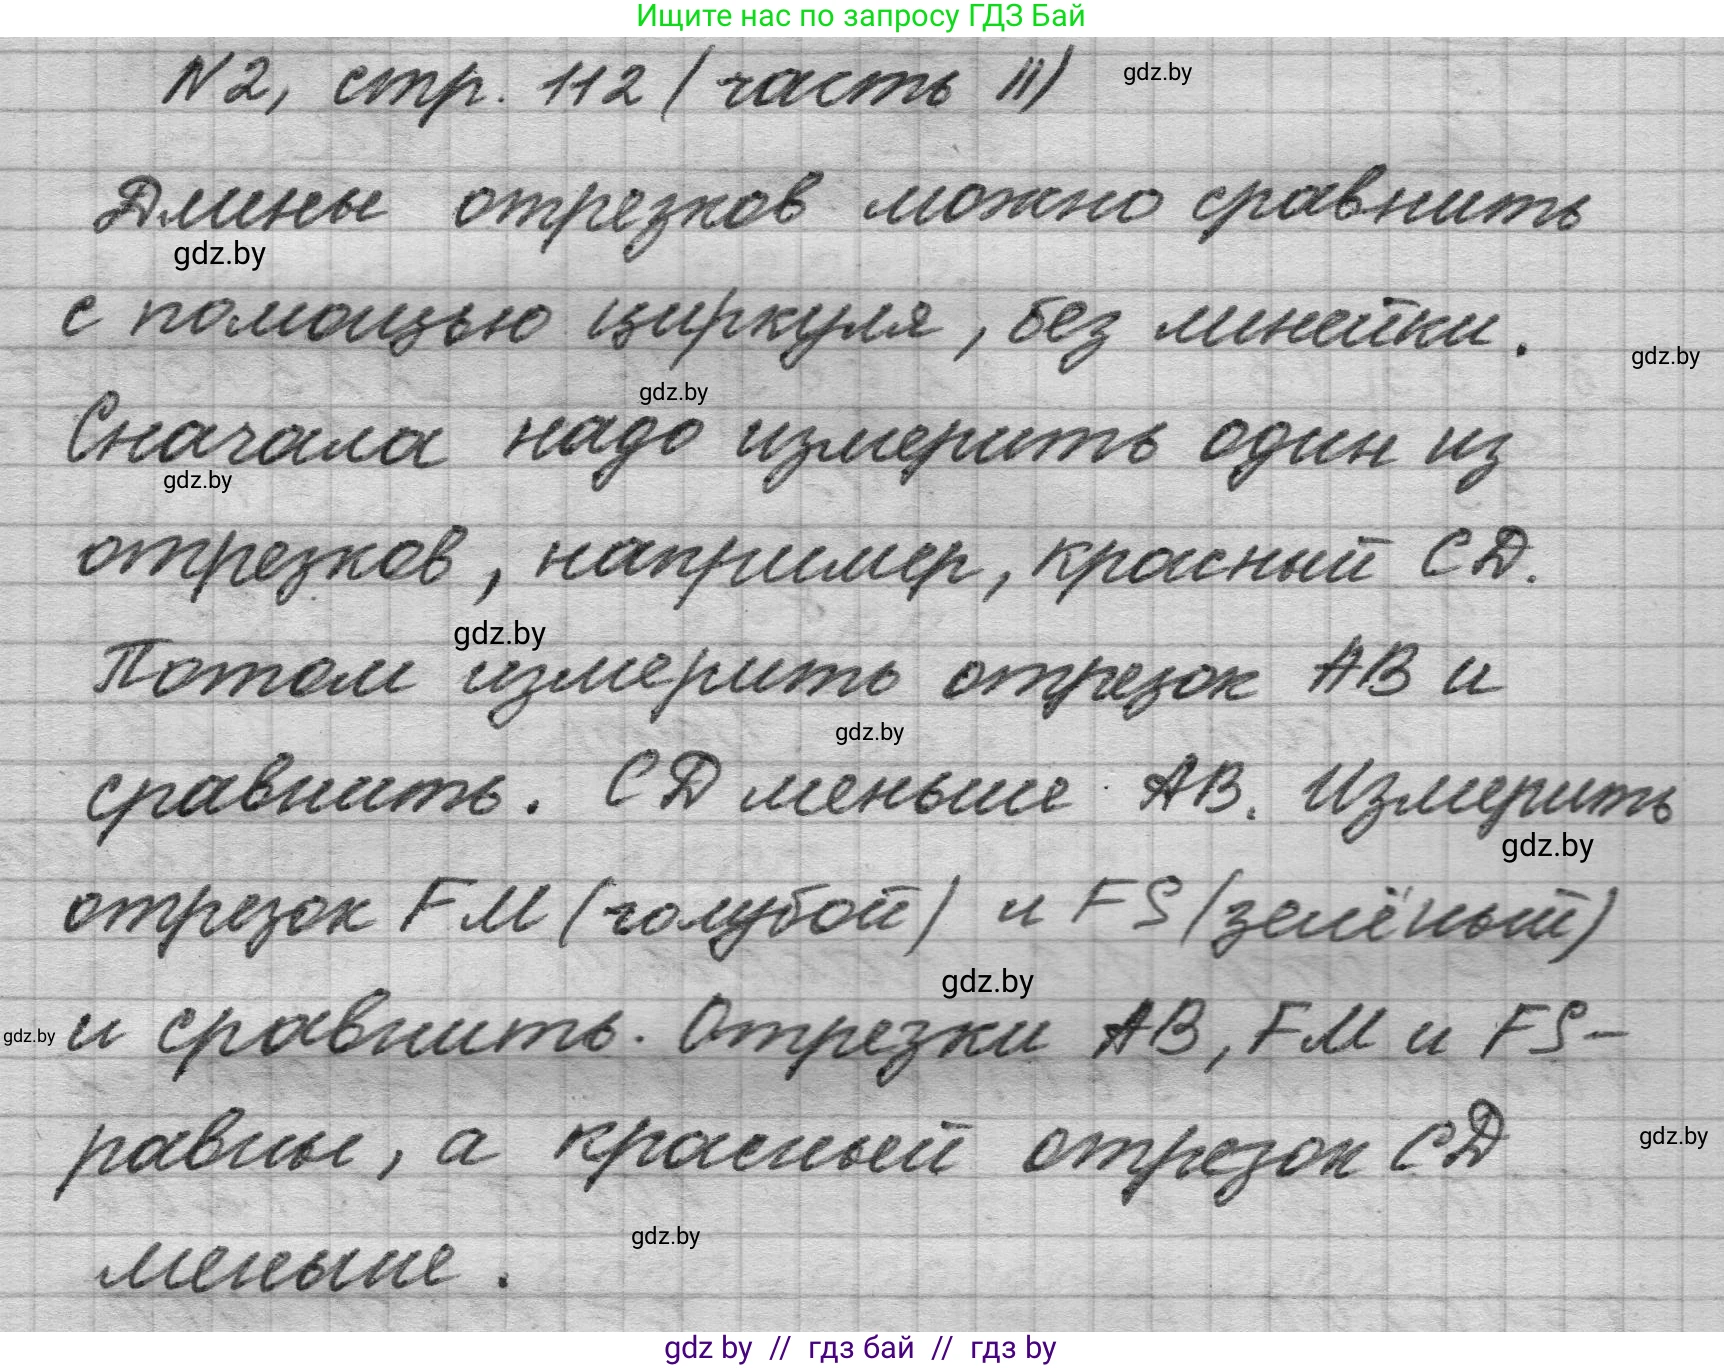 Ищите нас по запросу ГДЗ Бай
N2, стр. 112 (часть II)
gdz.by
Длины отрезков можно сравнить
gdz.by
с помощью циркуля, без линейки.
gdz.by
gdz.by
Сначала надо измерить один из
gdz.by
отрезков, например, красный СД.
gdz.by
Потом измерить отрезок АВ и
gdz.by
сравнить. СД меньше АВ. Измерить
gdz.by
отрезок FM (голубой) и FS (зелёный)
gdz.by
gdz.by
и сравнить. Отрезки АВ, FM и FS-
равны, а красный отрезок СД
gdz.by
gdz.by
меньше.
gdz by // гдз бай // гдз by